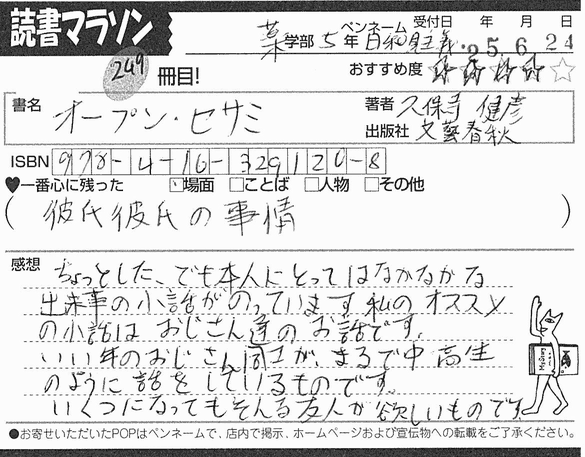 読書マラソン
249 冊目!
薬学部 5年 ペンネーム 日和見主義 受付日 '25年 6月 24日
おすすめ度 ★★★★☆
書名 オープン・セサミ
著者 久保寺 健彦
出版社 文藝春秋
ISBN 978-4-16-329120-8
♥一番心に残った □場面 □ことば □人物 □その他
(彼氏彼氏の事情)
感想
ちょっとした、でも本人にとってはなかなかな
出来事の小話がのっています。私のオススメ
の小話はおじさん達のお話です。
いい年のおじさん同士が、まるで中高生
のように話をしているものです。
いくつになってもそんな友人が欲しいものです。
●お寄せいただいたPOPはペンネームで、店内で掲示、ホームページおよび宣伝物への転載をご了承ください。